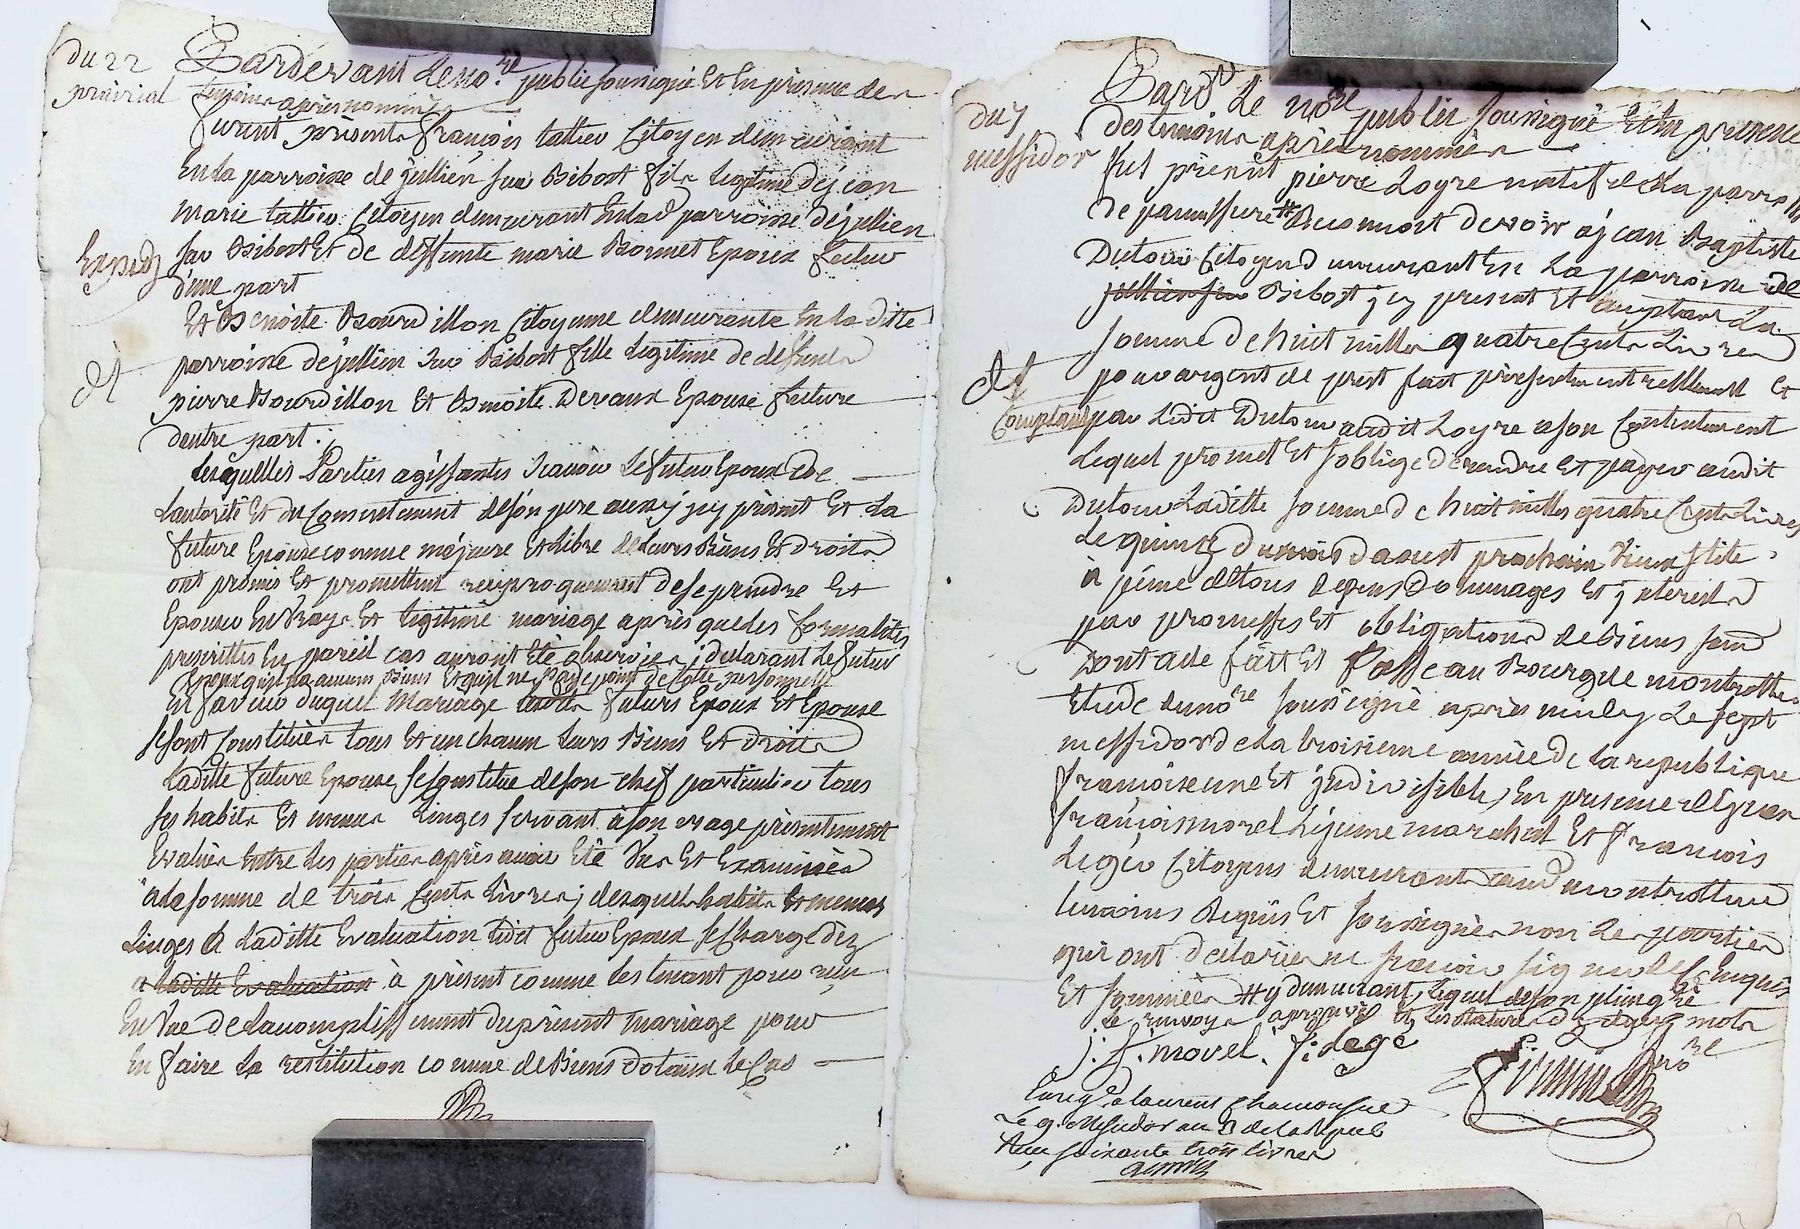 Du 22
prairial
Pardevant le no.re public soussigné Et En présence des
temoins après nommés
furent présents françois tallieu Citoyen demeurant
En la parroisse de jullien sur Bibost fils legitime de jean
marie tallieu Citoyen demeurant En lad. parroisse de jullien
Exped
sur Bibost Et de deffunte marie Bonnet Epoux futur
d'une part
Et Benoite Bourdillon Citoyenne demeurante En la ditte
parroisse de jullien sur Bibost fille legitime de deffunts
pierre Bourdillon Et Benoite Devaux Epouse future
dautre part.
lesquelles Parties agissantes sçavoir le futur Epoux de
Lautorité Et du Consentement de son pere aussy jcy présent Et La
future Epouse comme majeure Et Libre de leurs Biens Et droits
ont promis Et promettent reciproquement de se prendre Et
Epouser En Vray Et legitime mariage après que les formalités
prescrittes En pareil cas auront Eté observées, declarant le futur
Epoux qu'il n'a aucun Biens Et qu'il ne paye point de Cotte personnelle
En faveur duquel Mariage futurs Epoux Et Epouse
se sont Constitués tous Et un chacun leurs Biens Et droits
laditte future Epouse se Constitue de son chef particulier tous
ses habits Et menus Linges servant à son usage présentement
Evalués Entre les parties après avoir Eté Vus Et Examinés
a la somme de trois Cents Livres; desquels habits Et menus
Linges & laditte Evaluation ledit futur Epoux se Charge dez
laditte Evaluation à présent comme les tenant pour reçu
En Vue de Lacomplissement du présent mariage pour
En faire la restitution comme de Biens dotaux le Cas
Du 7
messidor
Pard.t Le no.re public soussigné Et En presence
des temoins après nommés
fut présent pierre Loyre natif de La parroisse
de # Reconnoit devoir a jean Baptiste
Dutour Citoyen demeurant En La parroisse de
jullien sur Bibost jcy present Et acceptant La
somme de huit milles quatre Cents Livres
pour argent de prest fait présentement réellement Et
Comptant par Ledit Dutour audit Loyre a son Contentement
Lequel promet Et soblige de rendre Et payer audit
Dutour Laditte somme de huit milles quatre Cents Livres
Le quinze du mois daoust prochain Vieux stile
a peine de tous depens Dommages Et jnterests
par promesses Et obligations de Biens sous
Dont acte fait Et Passé au Bourg de montrottier
Etude du no.re soussigné après midy Le sept
messidor de la troisieme année de la republique
françoise une Et jndivisible, En presence de jean
françois morel Le jeune marchand Et françois
Leger Citoyens demeurants aud. montrottier
temoins Requis Et soussignés non Les parties
qui ont déclarées ne sçavoir signer de Ce Enquis
Et sommées # y demeurant, Lequel de son plein gré
Le renvoy approuvé Et Les Ratures de deux mots
j. f. morel. f. legé
no.re
Enreg.é a laurent Chamousset
Le 9. Messidor an 3 de la Repub
Reçu soixante trois Livres